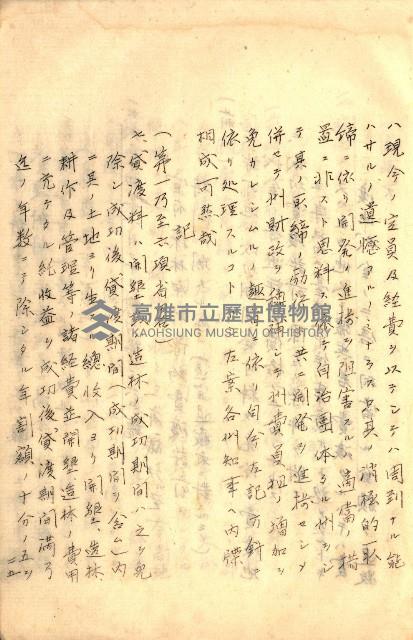 ハ現今ノ定員及経費ヲ以テシテハ周到ナル能
ハサルノ遺憾アルノミナラス只其ノ消極的取
締ニ依リ開発ノ進捗ヲ阻害スルハ適当ノ措
置ニ非スト思料ス依テ自治団体タル州ヲシ
テ其ノ取締ヲ励行スルト共ニ開発ヲ進捗セシメ
併セテ州財政ヲ シテ州費負担ノ増加ヲ
免カレシムルノ趣旨ニ依リ自今左記方針ニ
依リ処理スルコトトシ左案各州知事ヘ内牒
相成可然哉
記
(第一乃至六項省略)
七、貸渡料ハ開墾、造林ノ成功期間ハ之ヲ免
除シ成功後貸渡期間(成功期間ヲ含ム)内
ニ其ノ土地ヨリ生スル総収入ヨリ開墾、造林
耕作及管理等ノ諸経費並開墾造林ノ費用
ニ充テタル純収益ヲ成功後貸渡期間満了
迄ノ年数ニテ除シタル年割額ノ十分ノ五ヲ
高雄市立歷史博物館
KAOHSIUNG MUSEUM OF HISTORY